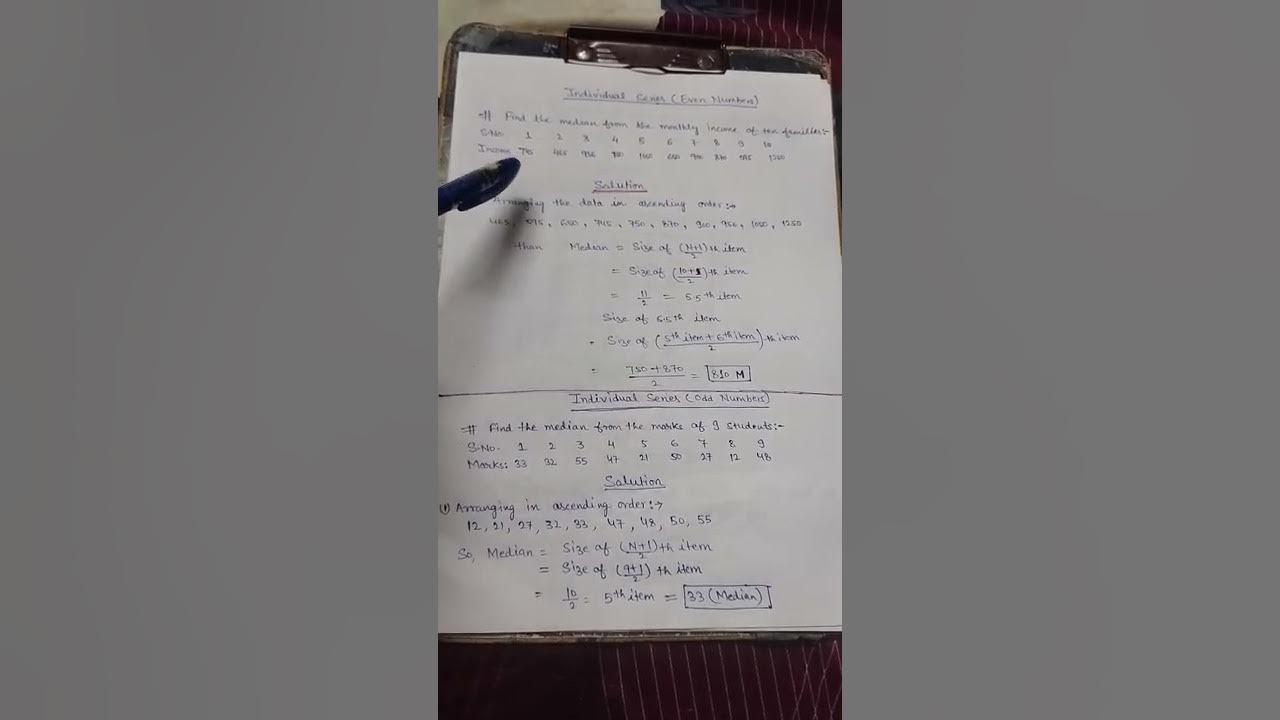 Individual Series (Even Numbers)
# Find the median from the monthly income of ten families:-
S.No. 1 2 3 4 5 6 7 8 9 10
Income 465 1250
Solution
Arranging the data in ascending order:→
750, 870, 1250
than Median = Size of (N+1)/2 th item
= Size of (10+1)/2 th item
= 11/2 = 5.5th item
Size of 5.5th item
= Size of (5th item + 6th item)/2 th item
= 750+870/2 = 810 M
Individual Series (Odd Numbers)
# Find the median from the marks of 9 students:-
S.No. 1 2 3 4 5 6 7 8 9
Marks: 33 32 55 47 21 50 27 12 48
Solution
(1) Arranging in ascending order:→
12, 21, 27, 32, 33, 47, 48, 50, 55
So, Median = Size of (N+1)/2 th item
= Size of (9+1)/2 th item
= 10/2 = 5th item = 33 (Median)